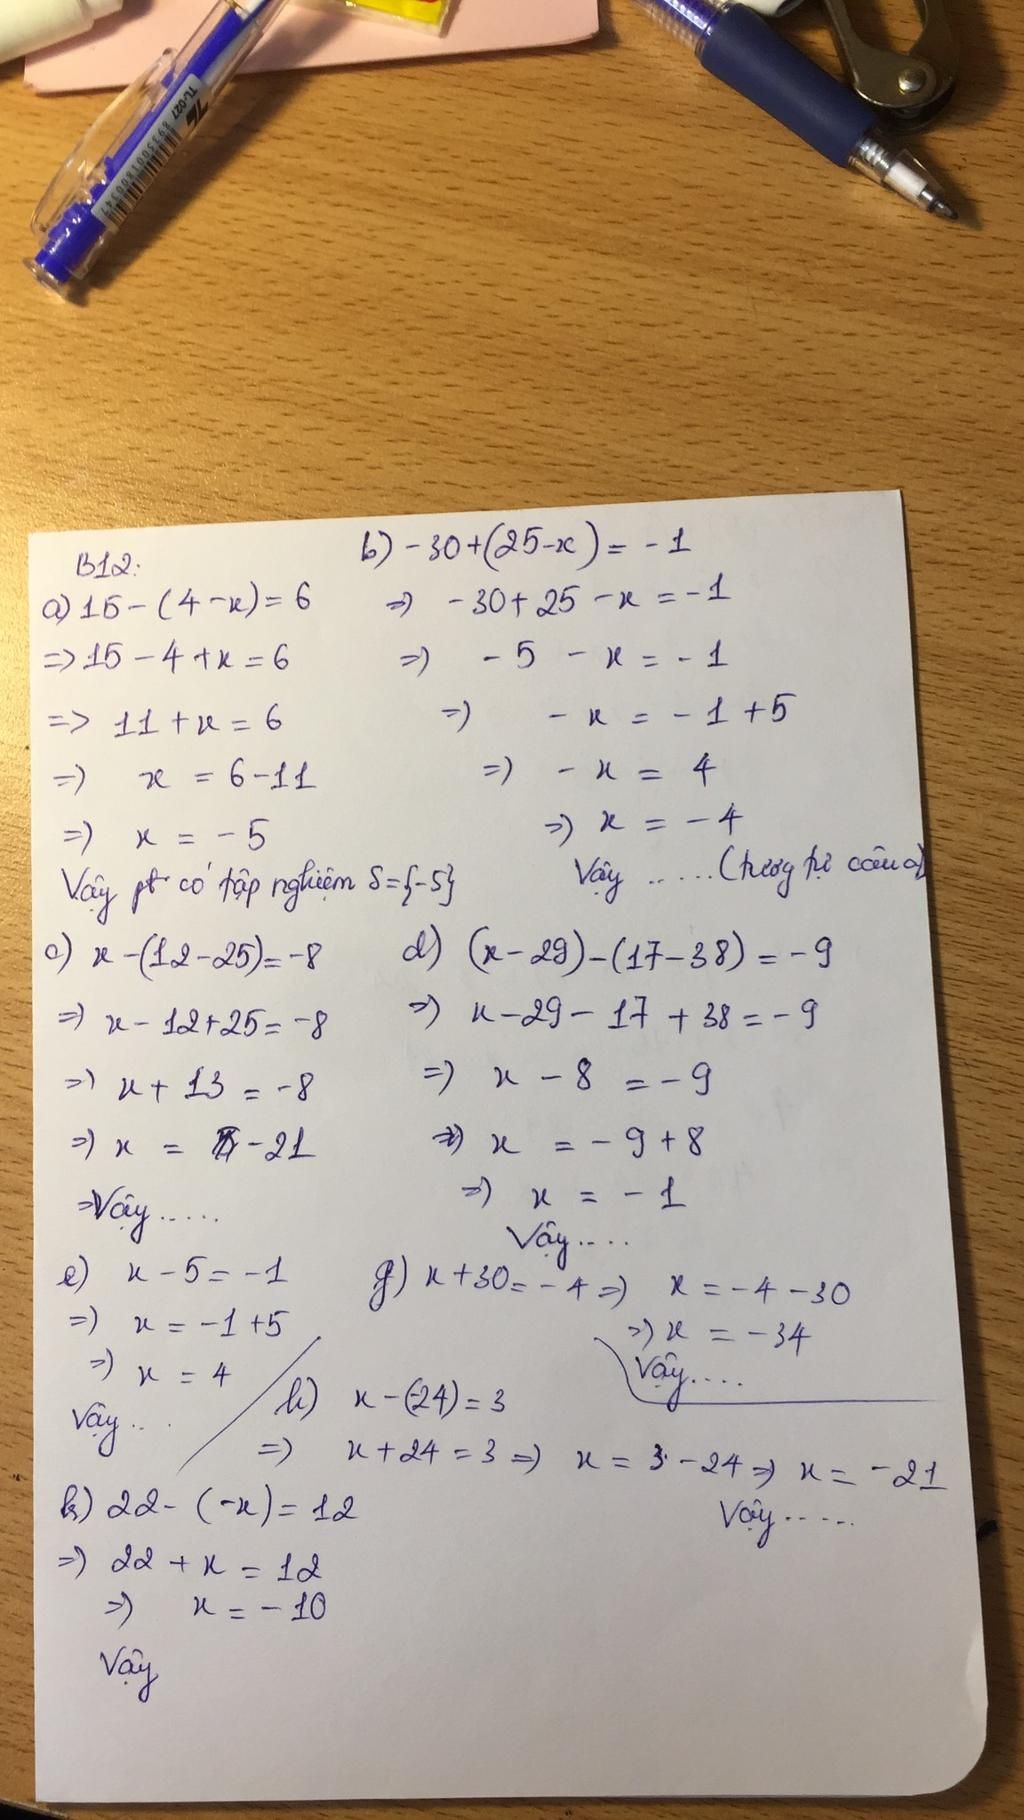 TL-027
B12:
a) 15-(4-x)=6
=> 15-4+x=6
=> 11+x=6
=> x = 6-11
=> x = -5
Vậy pt có tập nghiệm S={-5}
b) -30+(25-x) = -1
=> -30+25 -x = -1
=> -5 -x = -1
=> -x = -1+5
=> -x = 4
=> x = -4
Vậy ..... (tương tự câu a)
c) x-(12-25)=-8
=> x-12+25=-8
=> x+13=-8
=> x = -21
=> Vậy .....
d) (x-29)-(17-38)=-9
=> x-29-17+38=-9
=> x-8=-9
=> x = -9+8
=> x = -1
Vậy ....
e) x-5=-1
=> x = -1+5
=> x = 4
Vậy ...
g) x+30=-4 => x = -4-30
=> x = -34
Vậy ....
h) x-(-24)=3
=> x+24=3 => x = 3-24 => x = -21
Vậy .....
k) 22-(-x)=12
=> 22+x=12
=> x = -10
Vậy